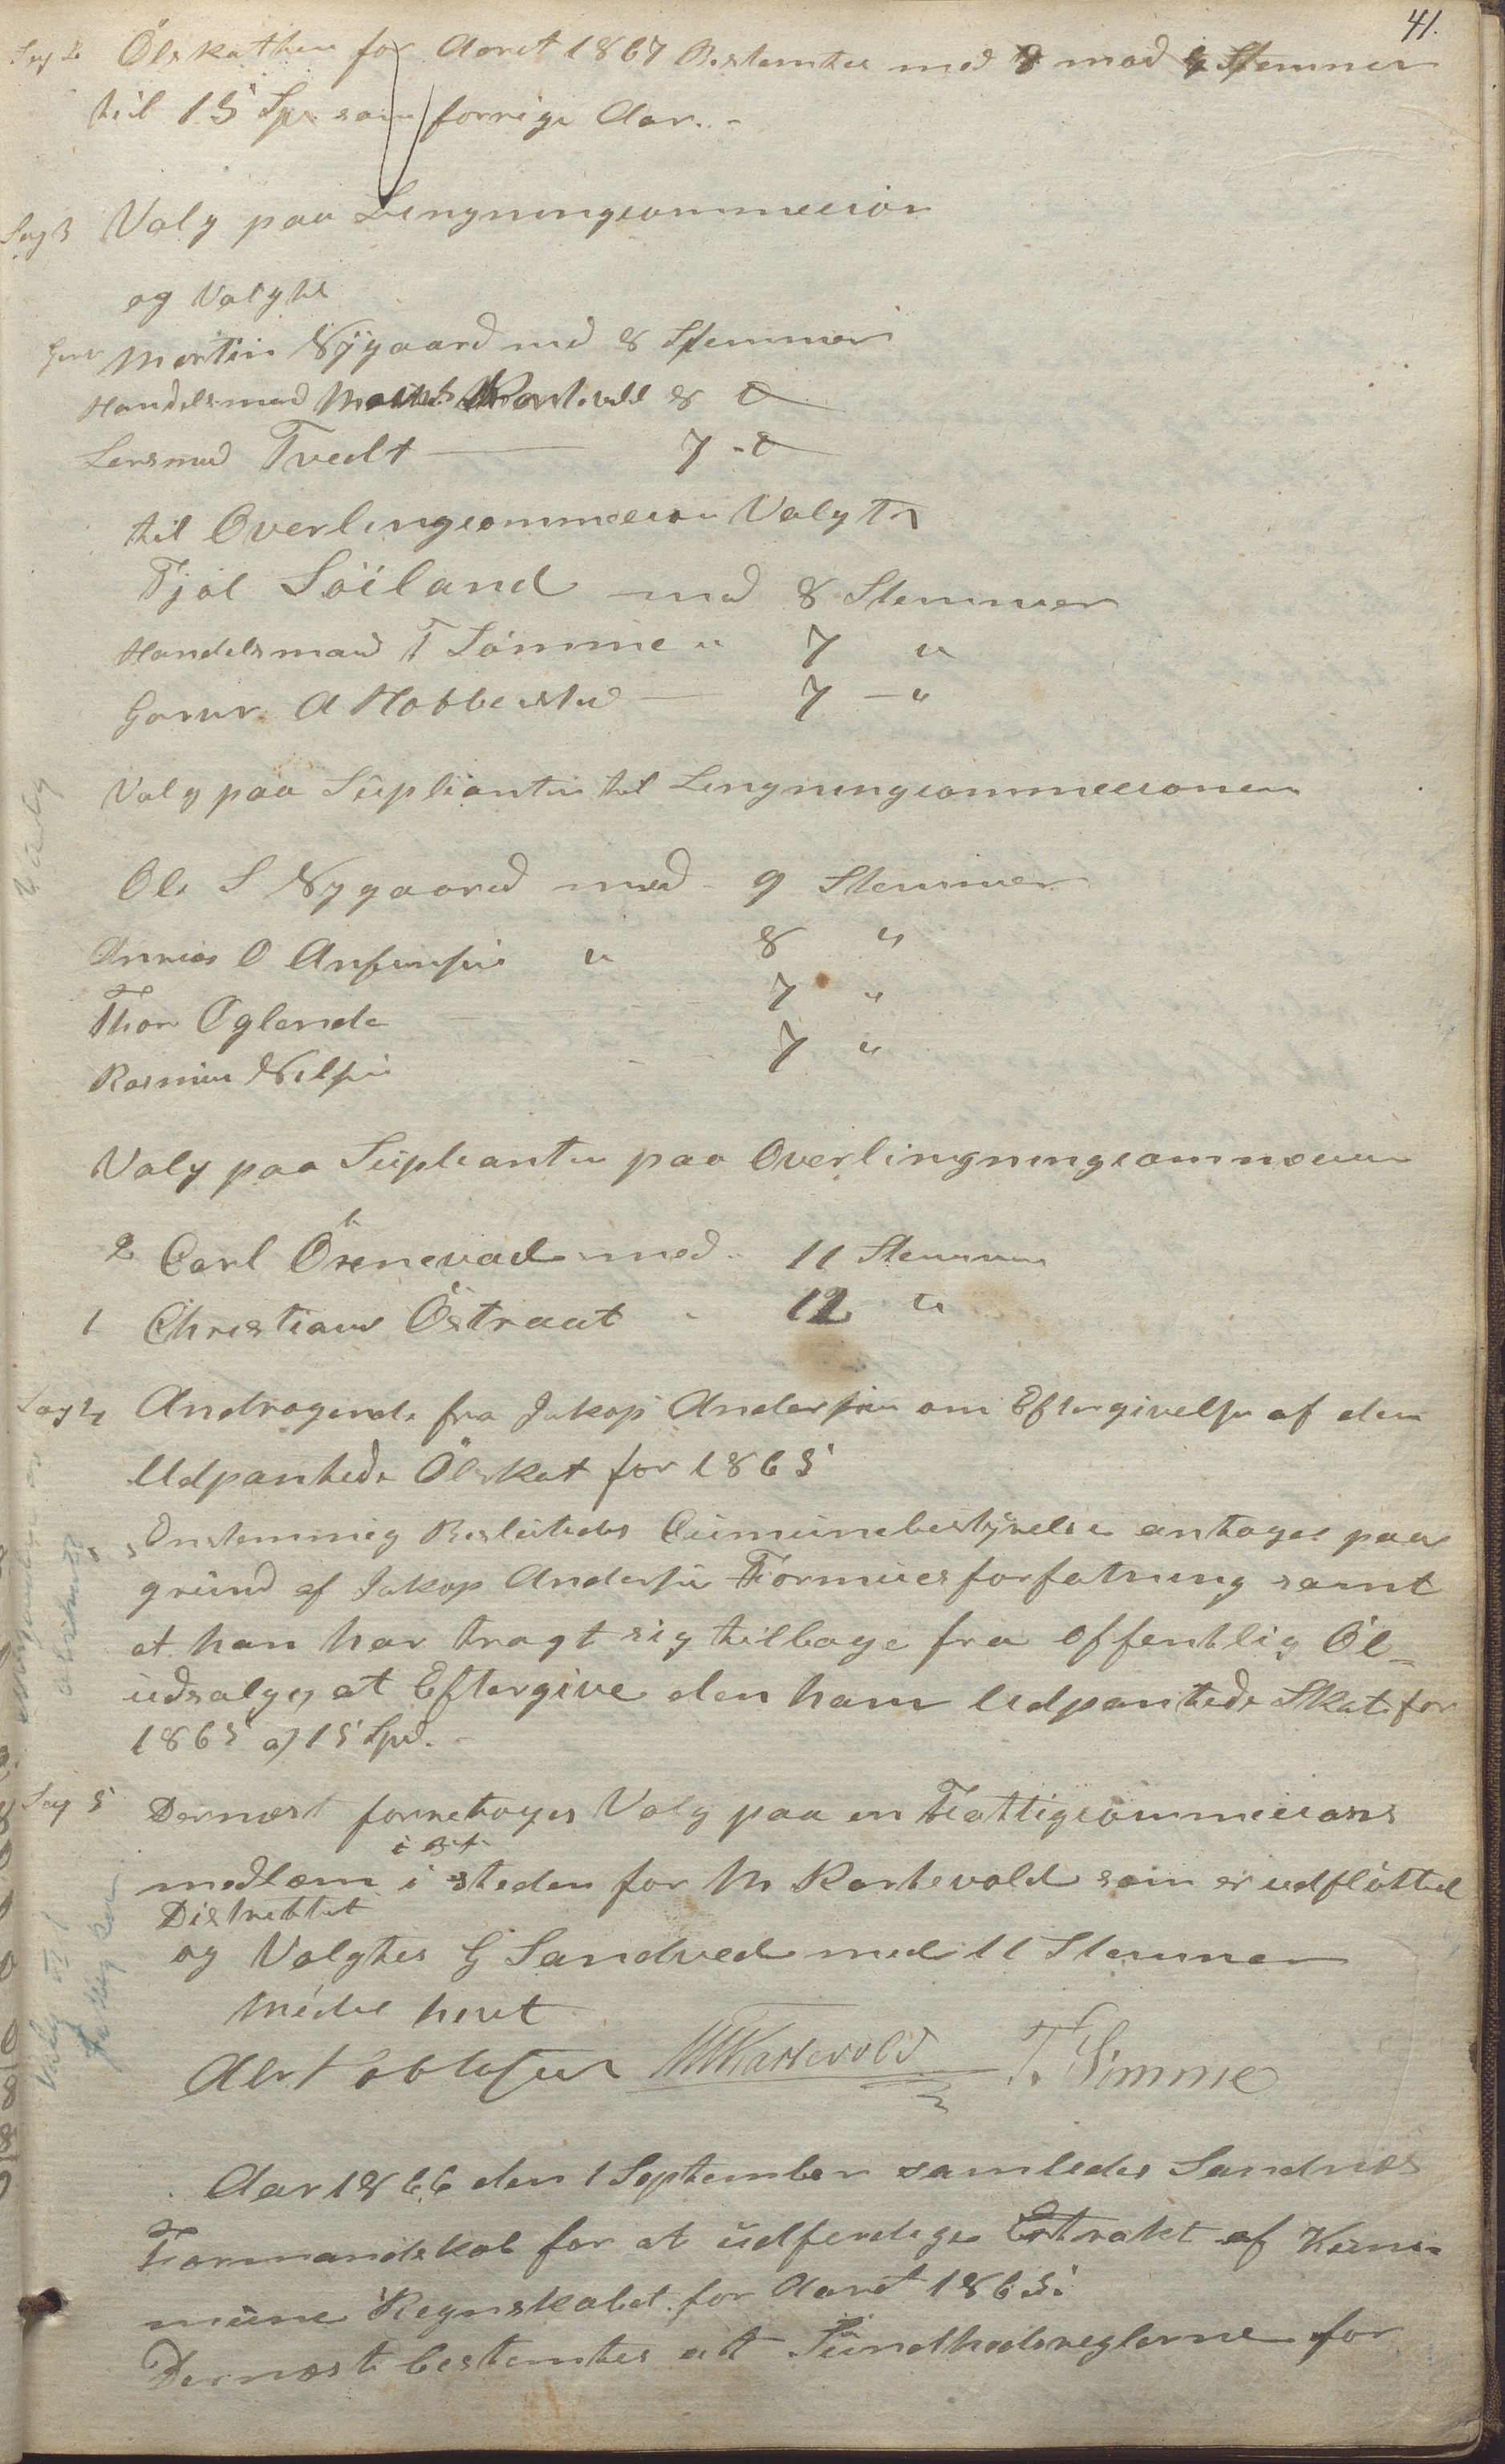 41.
Sag 2 Ölskatten for Aaret 1867 Bestemtes med 8 mod 4 Stemmer
til 15 Spd som forrige Aar. -
Sag 3 Valg paa Lingningscommecion
og Valgtes
Garver Martin Nÿgaard med 8 Stemmer
Handelsmand Kartevold 8 D
Lensmand Tvedt — 7 - D
til Overlingscommecion Valgtes
Tjøl Söiland med 8 Stemmer
Handelsmand T Sömme " 7 "
Garver A Hobbestad — 7 — "
Valg paa Süplianter til Lingningscommecionen
Ole S Nygaard med 9 Stemmer
Annias O Anfinsen " 8 "
Thor Oglende 7 "
Rasmus Nilsen 7 "
Valg paa Süplianter paa Overlingningscommecionen
2 Carl Öxnevad med 11 Stemmer
1 Christian Östraat - 12 "
Sag 4 Andragende fra Jakop Andersen om Eftergivelse af den
Udpantede Ölskat for 1865
Enstemmig Beslutedes Cümünebestÿrelse antages paa
gründ af Jakop Andersen Formüesforfatning samt
at han har tragt sig tilbage fra offentlig Öl-
üdsalg, at Eftergive den ham Udpantede Skat for
1865 af 15 Spd. -
Sag 5 Dernæst forretoges Valg paa en Fattigcommecions
medlæm i steden for M Kartevold som er udflötted
Distrektet
og Valgtes G Sandved med 11 Stemmer
Mödet hevet
MKartevold T. Sömme
Aar 1866 den 1 September samledes Sandnæs
Formandskab for at üdferdige Extrakt af Kum-
müne Regnskabet for Aaret 1865.
Dernæst bestemtes at Sündhedsreglerne for